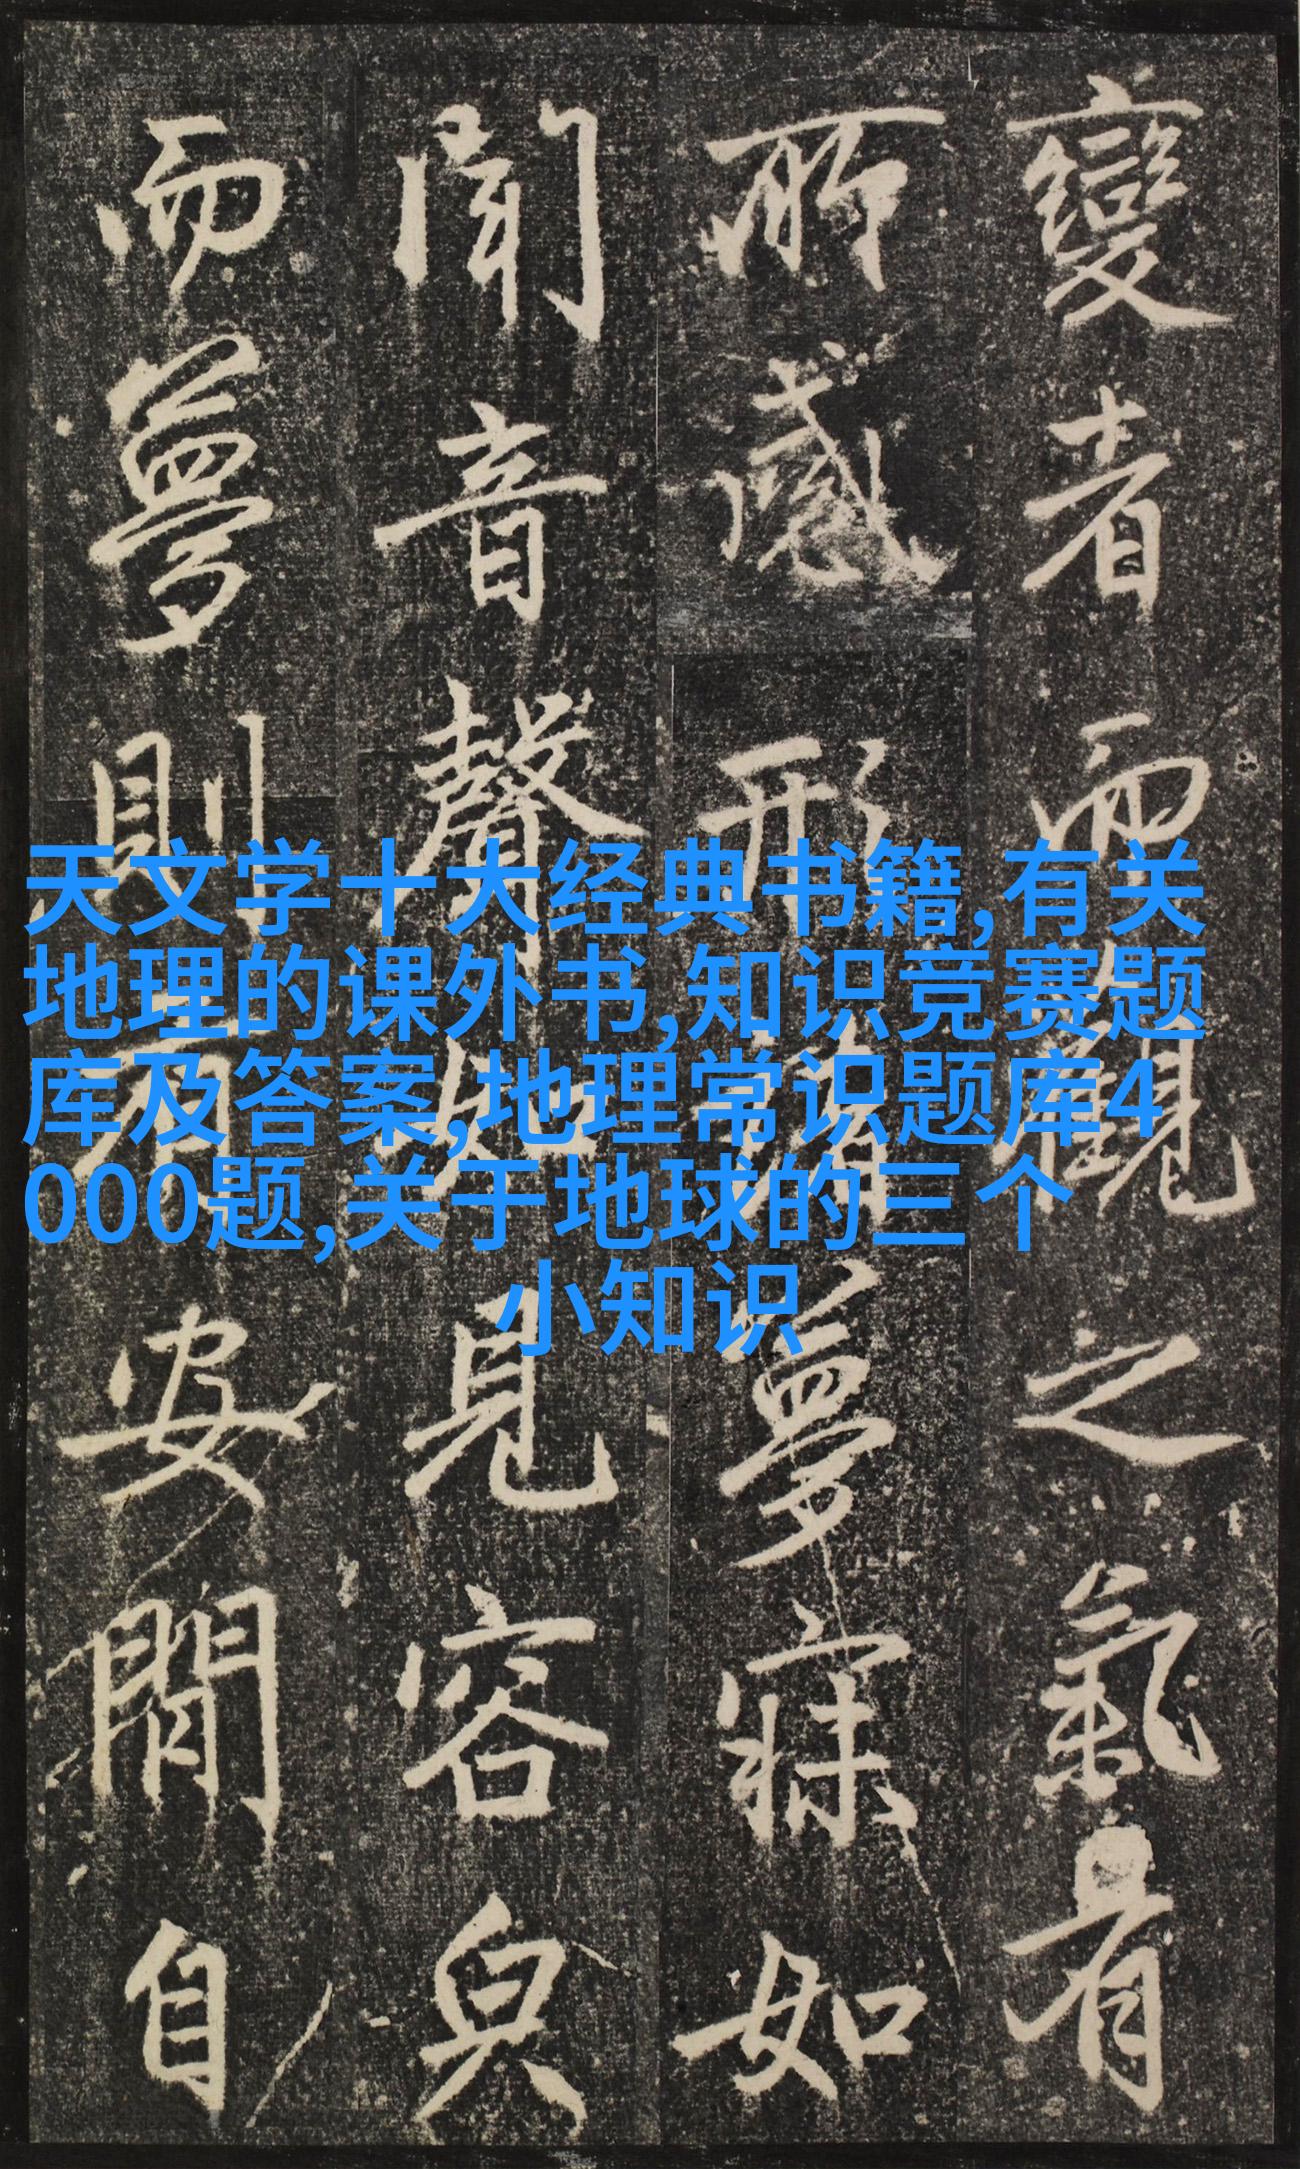 變者而觀之氣有
所感形夢寐如
聞音聲如見容皃
而夢則安閒自
天文学十大经典书籍,有关
地理的课外书,知识竞赛题
库及答案,地理常识题库4
000题,关于地球的三个
小知识